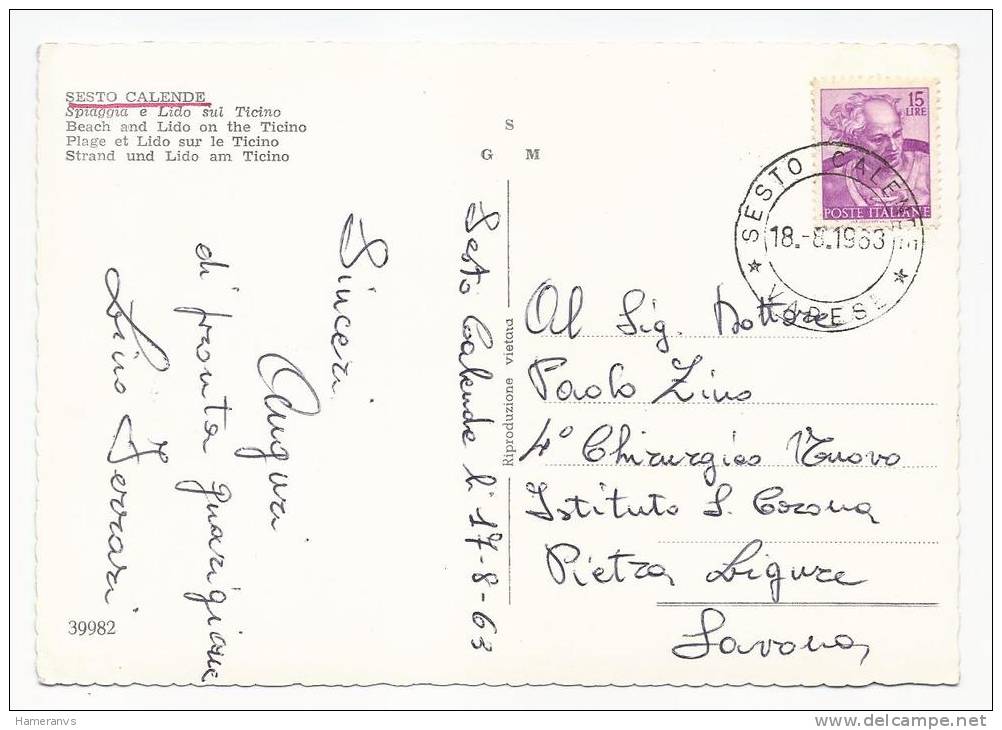 SESTO CALENDE
Spiaggia e Lido sul Ticino
Beach and Lido on the Ticino
Plage et Lido sur le Ticino
Strand und Lido am Ticino
S
G M
15
LIRE
POSTE ITALIANE
SESTO CALENDE
18.-8.1963
VARESE
Sesto Calende li 17-8-63
Sinceri
Auguri
di pronta guarigione
Lino Ferrari
Riproduzione vietata
Al Sig. Dottore
Paolo Zino
4° Chirurgico Nuovo
Istituto S. Corona
Pietra Ligure
Savona
39982
Hameranvs
www.delcampe.net